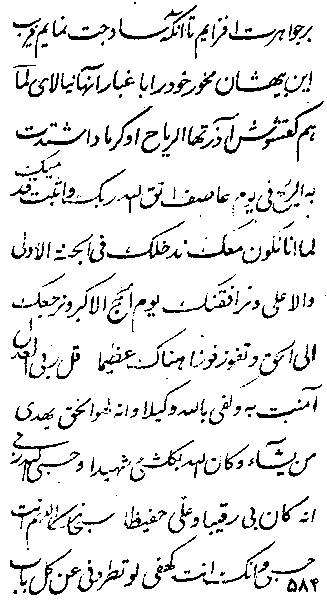 بر جواهرت افزایم تا آنکه ساذجت نمایم قریب
این بهشان مخور خود را با غبار آنها نیالای لما
هم کفتوش اذرتها الریاح او کرماد اشتدت
به الریح فی یوم عاصف اتق الله ربک واثبت قدمیک
لما انا نکون معک ندخلک فی الجنة الاولی
والاعلی ونرافقنک یوم الحج الاکبر ونرجعک
الی الحق وتفوز فوزا هناک عظیما قل ربی الله
آمنت به وکفی بالله وکیلا وانه لهو الحق یهدی
من یشآء وکان الله بکلشیء شهیدا وحسبی الله ربی
انه کان بی رقیبا وعلی حفیظا سبحانک اللهم انت
حسبی وانک انت کهفی لو تطردنی عن کل باب
۵۸۴